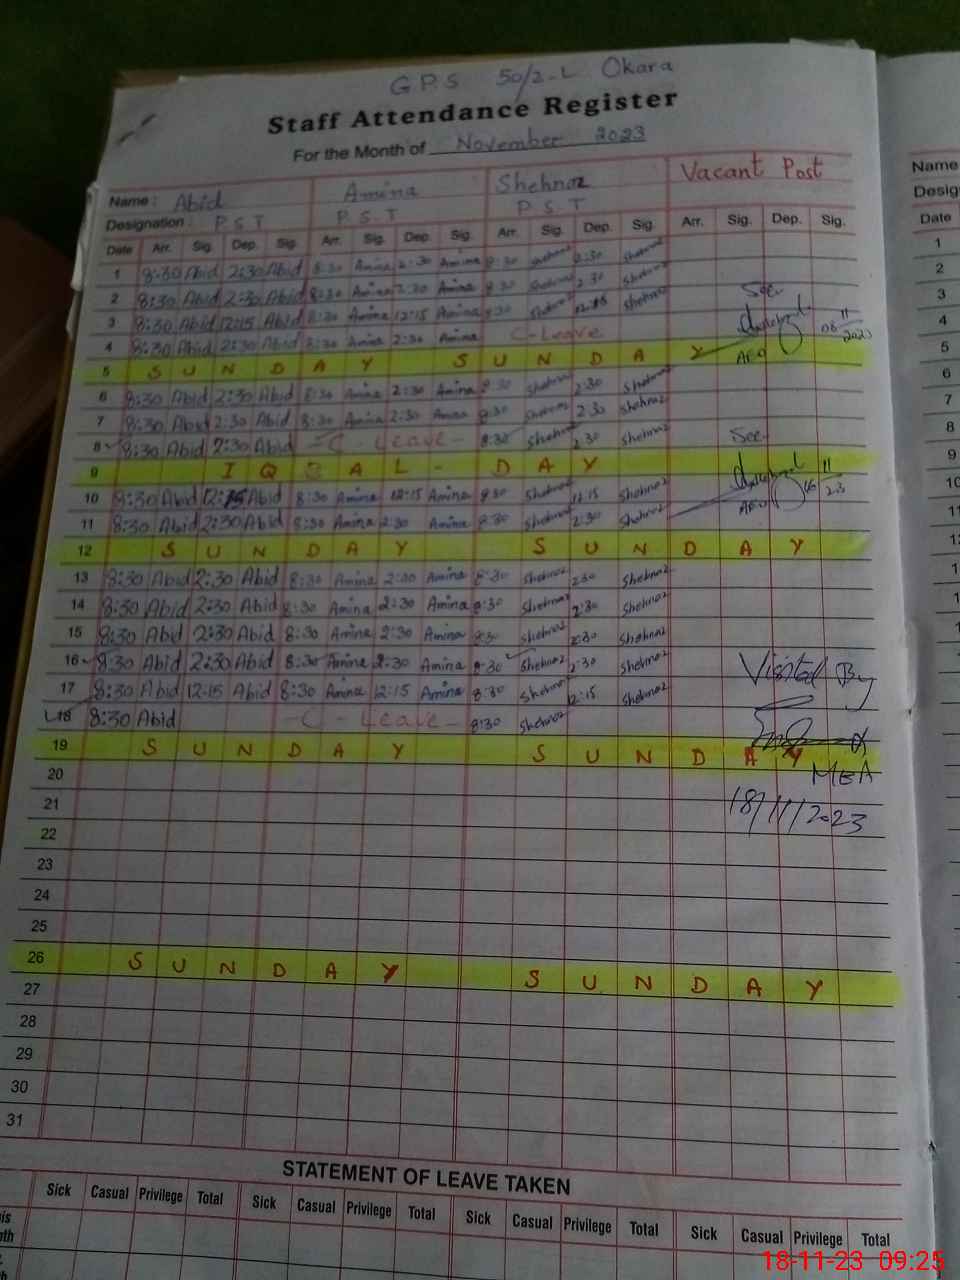 G.P.S 50/2-L Okara
Staff Attendance Register
For the Month of November 2023
Name : Abid Amina Shehnaz Vacant Post
Designation : P.S.T P.S.T P.S.T
Date Arr. Sig. Dep. Sig. Arr. Sig. Dep. Sig. Arr. Sig. Dep. Sig. Arr. Sig. Dep. Sig.
1 8:30 Abid 2:30 Abid 8:30 Amina 2:30 Amina 8:30 Shehnaz 2:30 Shehnaz
2 8:30 Abid 2:30 Abid 8:30 Amina 2:30 Amina 8:30 Shehnaz 2:30 Shehnaz
3 8:30 Abid 12:15 Abid 8:30 Amina 12:15 Amina 8:30 Shehnaz 12:15 Shehnaz
4 8:30 Abid 2:30 Abid 8:30 Amina 2:30 Amina C-Leave
5 S U N D A Y S U N D A Y AEO
6 8:30 Abid 2:30 Abid 8:30 Amina 2:30 Amina 8:30 Shehnaz 2:30 Shehnaz
7 8:30 Abid 2:30 Abid 8:30 Amina 2:30 Amina 8:30 Shehnaz 2:30 Shehnaz
8 8:30 Abid 2:30 Abid - C - Leave - 8:30 Shehnaz 2:30 Shehnaz
9 I Q B A L - D A Y
10 8:30 Abid 12:15 Abid 8:30 Amina 12:15 Amina 8:30 Shehnaz 12:15 Shehnaz AEO
11 8:30 Abid 2:30 Abid 8:30 Amina 2:30 Amina 8:30 Shehnaz 2:30 Shehnaz
12 S U N D A Y S U N D A Y
13 8:30 Abid 2:30 Abid 8:30 Amina 2:30 Amina 8:30 Shehnaz 2:30 Shehnaz
14 8:30 Abid 2:30 Abid 8:30 Amina 2:30 Amina 8:30 Shehnaz 2:30 Shehnaz
15 8:30 Abid 2:30 Abid 8:30 Amina 2:30 Amina 8:30 Shehnaz 2:30 Shehnaz
16 8:30 Abid 2:30 Abid 8:30 Amina 2:30 Amina 8:30 Shehnaz 2:30 Shehnaz Visited By
17 8:30 Abid 12-15 Abid 8:30 Amina 12:15 Amina 8:30 Shehnaz 12:15 Shehnaz
18 8:30 Abid - C - Leave - 8:30 Shehnaz
19 S U N D A Y S U N D A Y
20 MEA
21 18/11/2023
22
23
24
25
26 S U N D A Y S U N D A Y
27
28
29
30
31
STATEMENT OF LEAVE TAKEN
Sick Casual Privilege Total Sick Casual Privilege Total Sick Casual Privilege Total Sick Casual Privilege Total
18-11-23 09:25
Name
Desig
Date
1
2
3
4
5
6
7
8
9
10
11